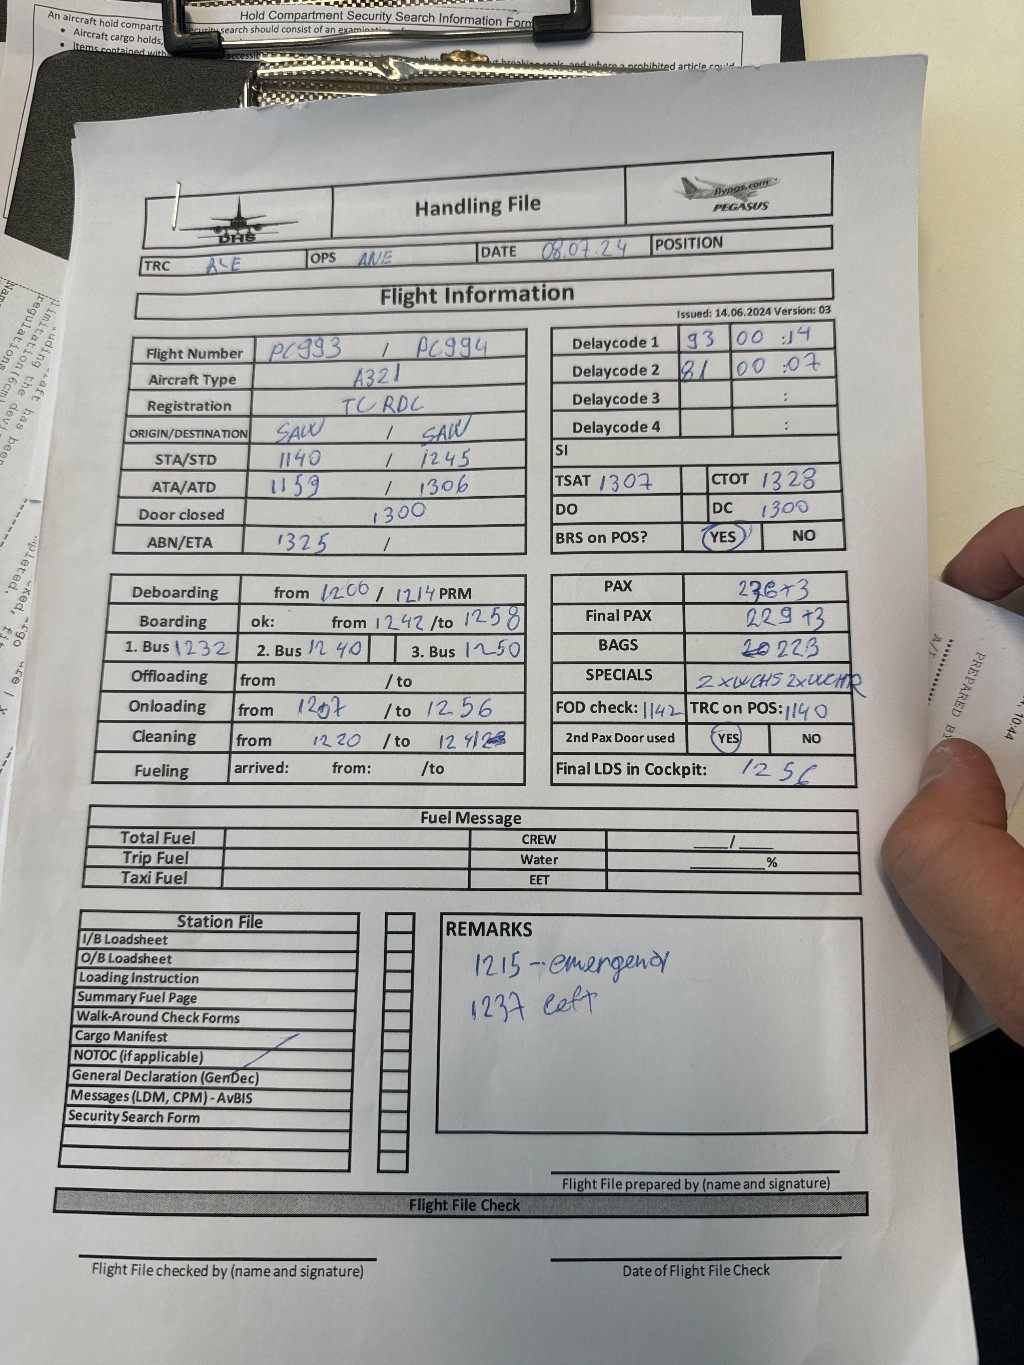 Hold Compartment Security Search Information Form
An aircraft hold compartm
security search should consist of an examin
Aircraft cargo holds,
Items contained with
accessi
ut breaking seals, and where a prohibited article could
DHS
Handling File
flypgs.com
PEGASUS
TRC ALE OPS ANE DATE 08.07.24 POSITION
Flight Information
Issued: 14.06.2024 Version: 03
Flight Number PC993 / PC994
Aircraft Type A321
Registration TCRDC
ORIGIN/DESTINATION SAW / SAW
STA/STD 1140 / 1245
ATA/ATD 1159 / 1306
Door closed 1300
ABN/ETA 1325 /
Delaycode 1 93 00 :14
Delaycode 2 81 00 :07
Delaycode 3 :
Delaycode 4 :
SI
TSAT 1307 CTOT 1328
DO DC 1300
BRS on POS? YES NO
Deboarding from 1206 / 1214 PRM
Boarding ok: from 1242 /to 1258
1. Bus 1232 2. Bus 1240 3. Bus 1250
Offloading from /to
Onloading from 1207 /to 1256
Cleaning from 1220 /to
Fueling arrived: from: /to
PAX 236+3
Final PAX 229+3
BAGS 223
SPECIALS 2xWCHS 2xWCHR
FOD check: 1142 TRC on POS: 1140
2nd Pax Door used YES NO
Final LDS in Cockpit: 1256
Fuel Message
Total Fuel CREW ____/____
Trip Fuel Water ________%
Taxi Fuel EET
Station File
I/B Loadsheet
O/B Loadsheet
Loading Instruction
Summary Fuel Page
Walk-Around Check Forms
Cargo Manifest
NOTOC (if applicable)
General Declaration (GenDec)
Messages (LDM, CPM) - AvBIS
Security Search Form
REMARKS
1215 - emergency
1237 left
Flight File prepared by (name and signature)
Flight File Check
Flight File checked by (name and signature)
Date of Flight File Check
10:44
PREPARED BY